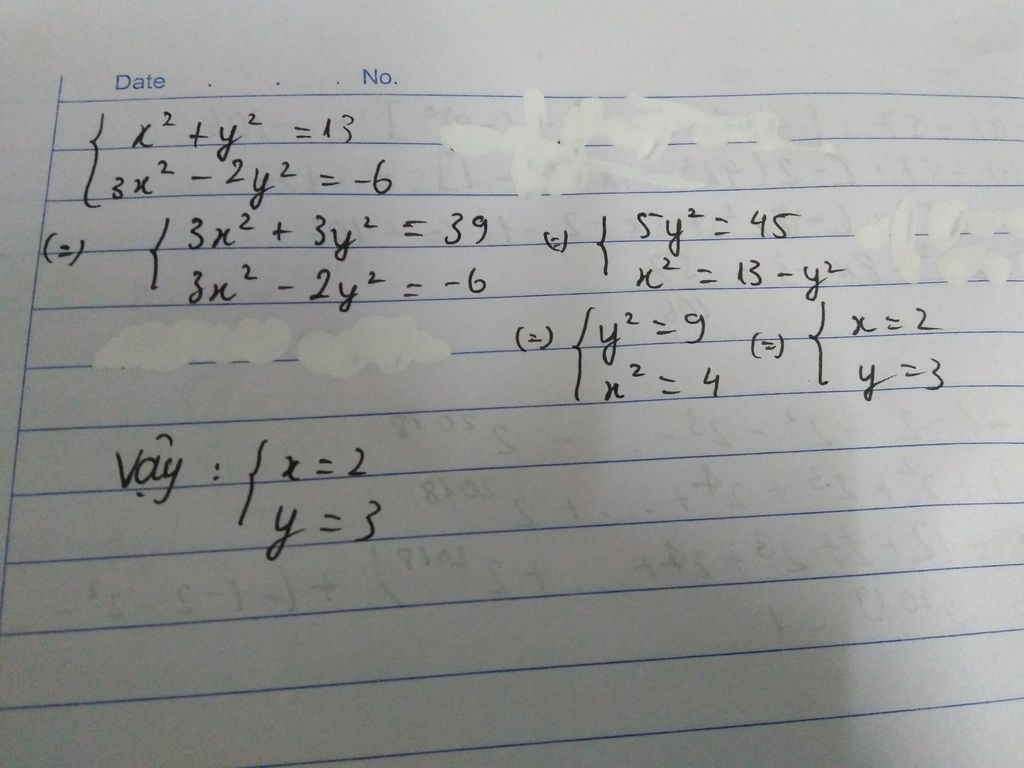 Date . . . No.
{ x² + y² = 13
3x² - 2y² = -6
(=) { 3x² + 3y² = 39 (=) { 5y² = 45
3x² - 2y² = -6 x² = 13 - y²
(=) { y² = 9 (=) { x = 2
x² = 4 y = 3
Vậy : { x = 2
y = 3